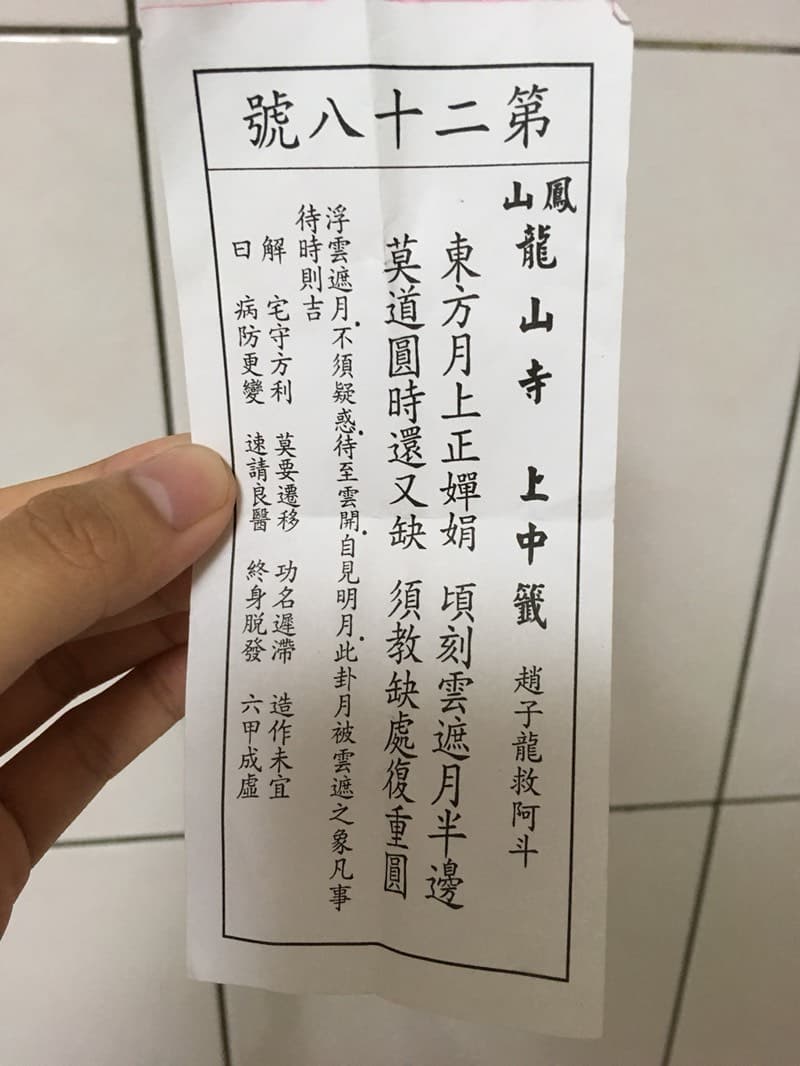 第二十八號
鳳山龍山寺 上中籤 趙子龍救阿斗
東方月上正嬋娟 頃刻雲遮月半邊
莫道圓時還又缺 須教缺處復重圓
浮雲遮月．不須疑惑．待至雲開．自見明月．此卦月被雲遮之象凡事
待時則吉
解 宅守方利 莫要遷移 功名遲滯 造作未宜
曰 病防更變 速請良醫 終身脫發 六甲成虛